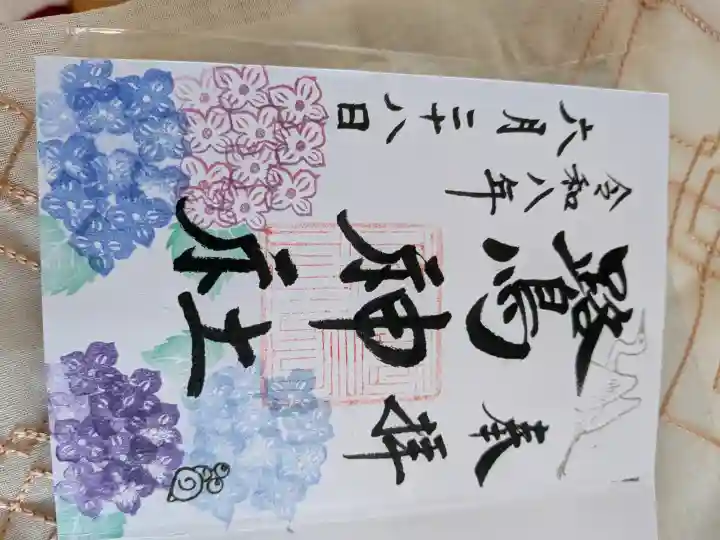 奉拝
鷺神社
令和八年
六月二十八日